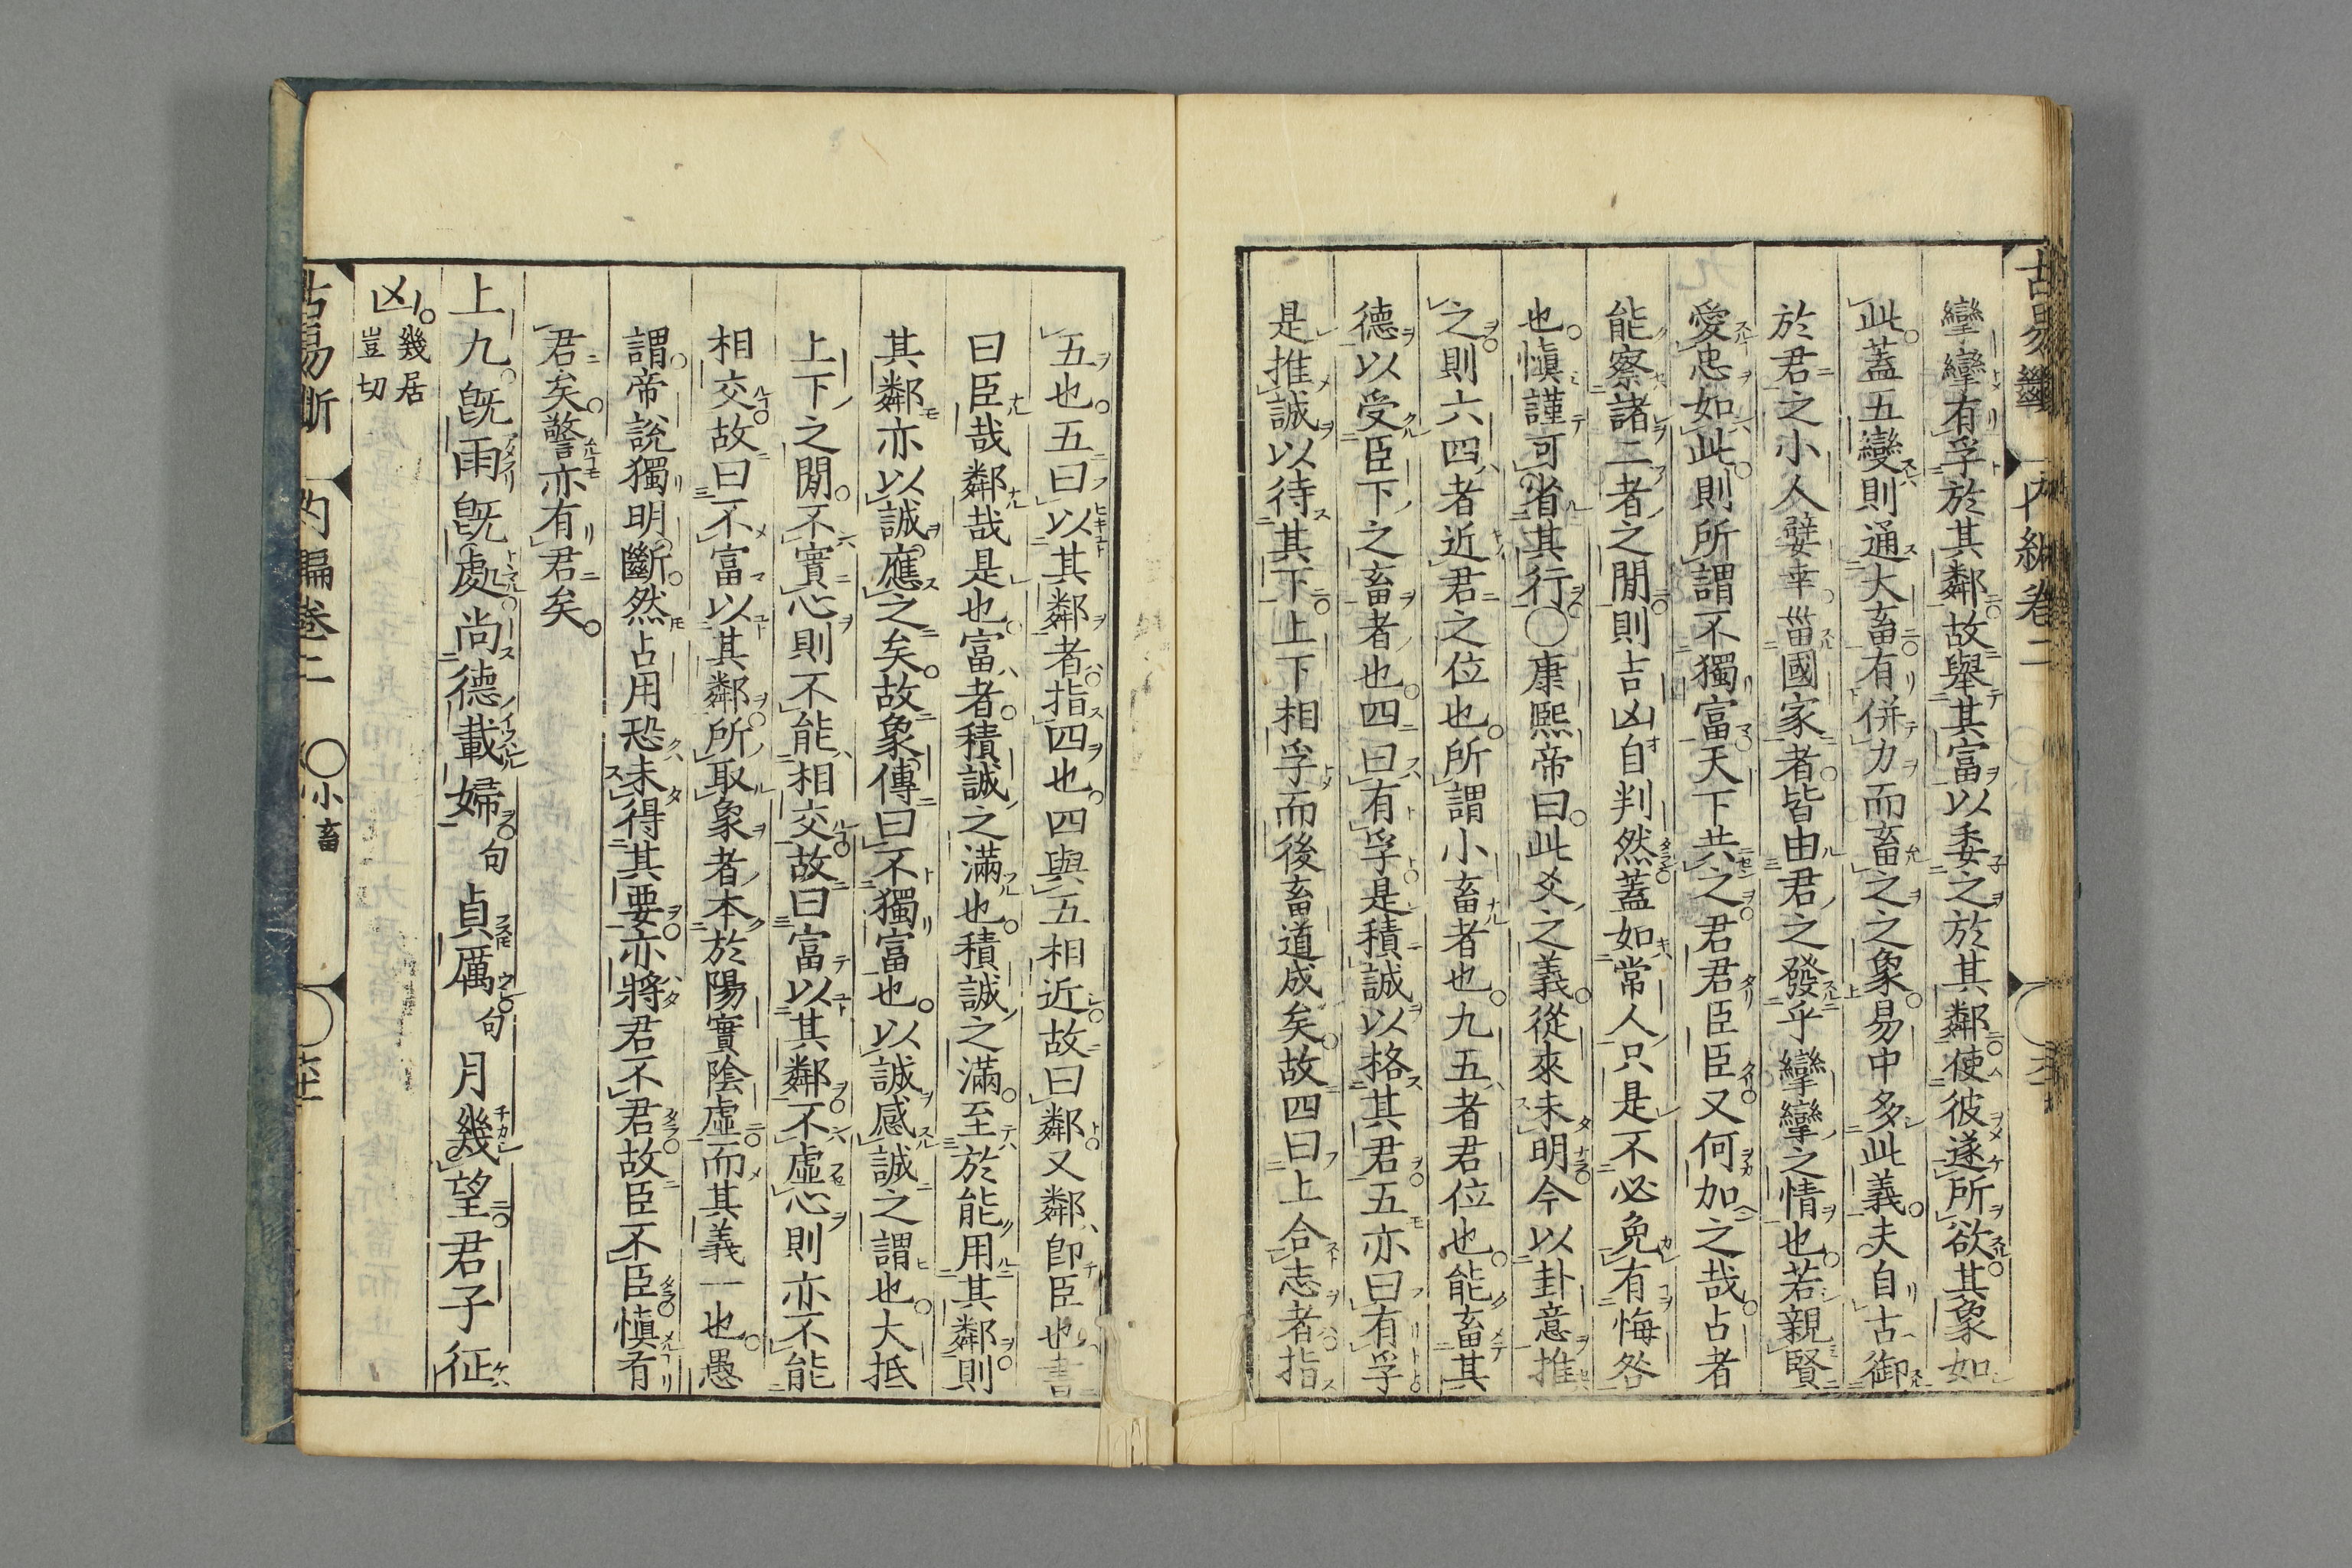 攣攣有孚於其鄰故舉其富以委之於其鄰使彼遂所欲其象如
此蓋五變則通大畜有併力而畜之之象易中多此義夫自古御
於君之小人嬖幸甾國家者皆由君之發乎攣攣之情也若親賢
愛忠如此則所謂不獨富天下共之君君臣臣又何加之哉占者
能察諸二者之閒則吉凶自判然蓋如常人只是不必免有悔咎
也愼謹可省其行○康熙帝曰此爻之義從來未明今以卦意推
之則六四者近君之位也所謂小畜者也九五者君位也能畜其
德以受臣下之畜者也四曰有孚是積誠以格其君五亦曰有孚
是推誠以待其下上下相孚而後畜道成矣故四曰上合志者指
五也五曰以其鄰者指四也四與五相近故曰鄰又鄰卽臣也書
曰臣哉鄰哉是也富者積誠之滿也積誠之滿至於能用其鄰則
其鄰亦以誠應之矣故象傳曰不獨富也以誠感誠之謂也大抵
上下之閒不實心則不能相交故曰富以其鄰不虛心則亦不能
相交故曰不富以其鄰所取象者本於陽實陰虛而其義一也愚
謂帝說獨明斷然占用恐未得其要亦將君不君故臣不臣愼有
君矣警亦有君矣
上九旣雨旣處尚德載婦句貞厲句月幾望君子征
凶幾居豈切
古易斷 内編卷二 ○小畜